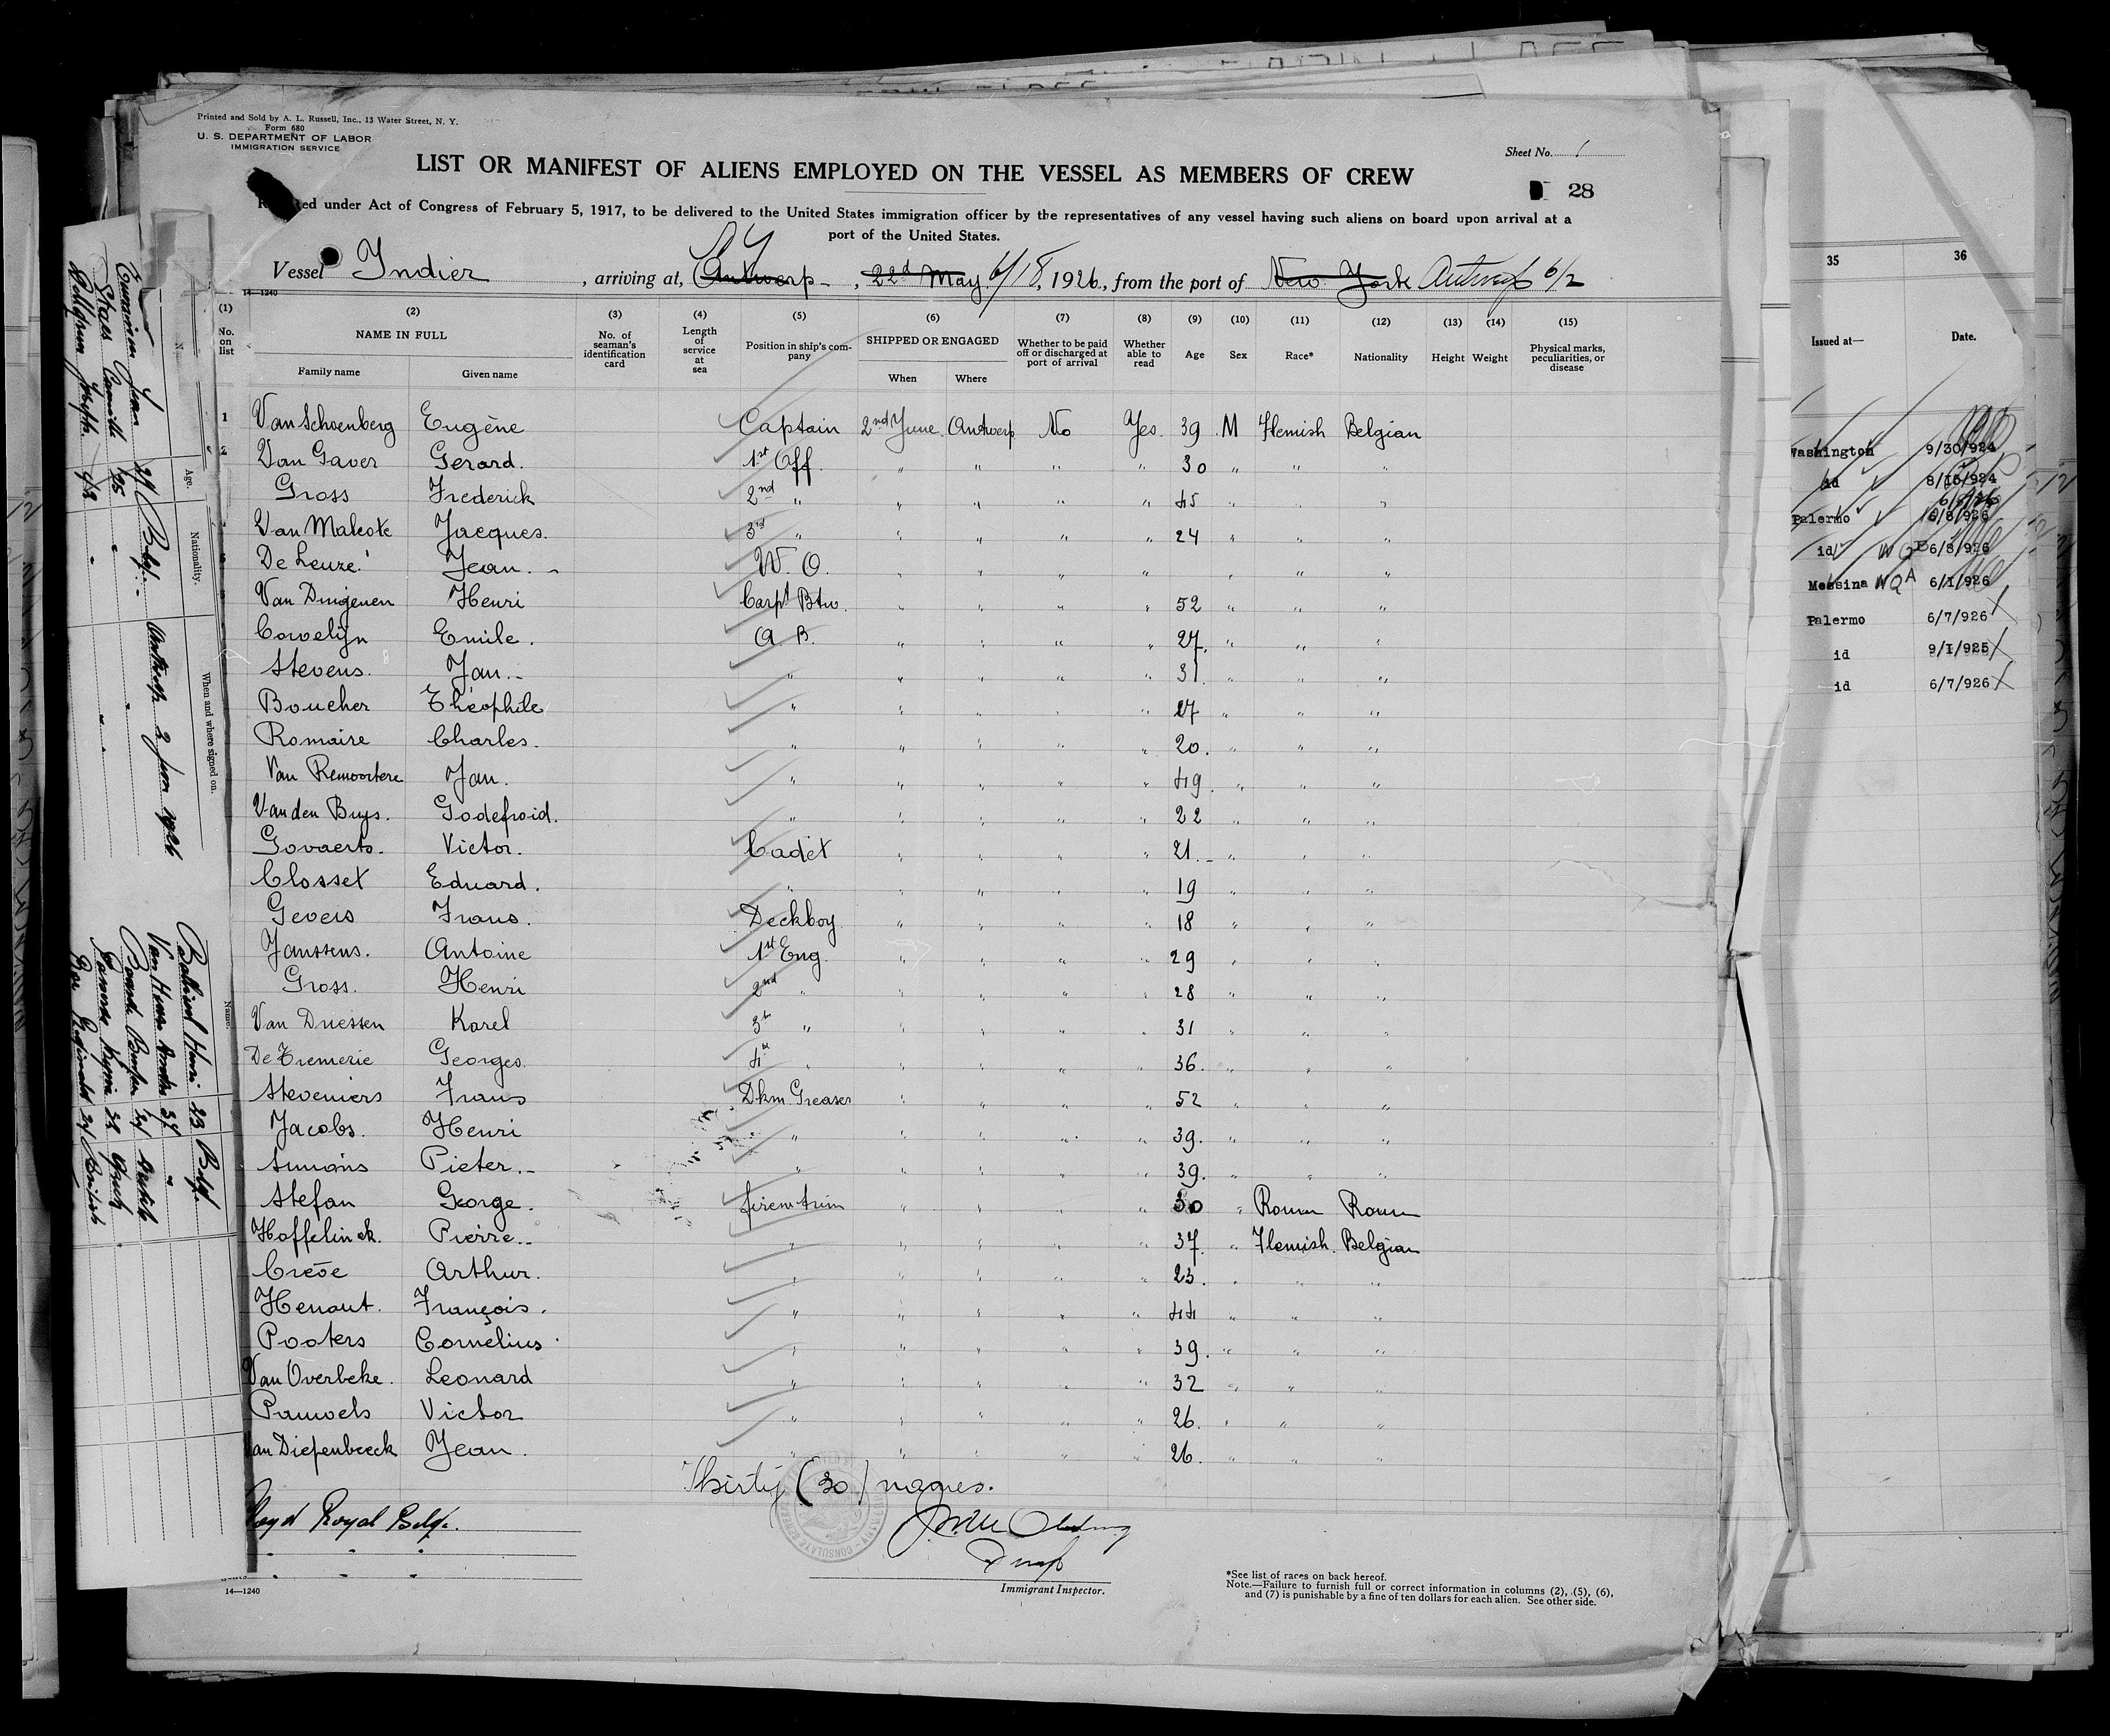 Printed and Sold by A. L. Russell, Inc., 13 Water Street, N. Y.
Form 680
U. S. DEPARTMENT OF LABOR
IMMIGRATION SERVICE
Sheet No. 1
LIST OR MANIFEST OF ALIENS EMPLOYED ON THE VESSEL AS MEMBERS OF CREW
28
under Act of Congress of February 5, 1917, to be delivered to the United States immigration officer by the representatives of any vessel having such aliens on board upon arrival at a
port of the United States.
Vessel Indier, arriving at, Antwerp NY, 22d May 6/18, 1926, from the port of New York Antwerp 6/2
14—1240
(1) (2) (3) (4) (5) (6) (7) (8) (9) (10) (11) (12) (13) (14) (15)
No. on list NAME IN FULL Family name Given name No. of seaman's identification card Length of service at sea Position in ship's company SHIPPED OR ENGAGED When Where Whether to be paid off or discharged at port of arrival Whether able to read Age Sex Race* Nationality Height Weight Physical marks, peculiarities, or disease
1 Van Schoenberg Eugène Captain 2nd June Antwerp No Yes 39 M Flemish Belgian
2 Van Gaver Gerard. 1st Off. " " " " 30 " " "
Gross Frederick 2nd " " " " " 45 " " "
Van Malcote Jacques. 3rd " " " " " 24 " " "
De Leuze Jean. W. O. " " " " " " "
Van Dingenen Henri Carpt Btw. " " " " 52 " " "
Cowelijn Emile. A. B. " " " " 27. " " "
Stevens. Jan. " " " " " 31 " " "
Boucher Théophile " " " " " 27 " " "
Romaire Charles. " " " " " 20. " " "
Van Remoortere Jan. " " " " " 49. " " "
Vanden Buys. Godefroid. " " " " " 22 " " "
Govaerts. Victor. Cadet " " " " 21. " " "
Closset Eduard. " " " " " 19 " " "
Gevers Frans. Deckboy " " " " 18 " " "
Janssens. Antoine 1st Eng. " " " " 29 " " "
Gross. Henri 2nd " " " " " 28 " " "
Van Driessen Karel 3rd " " " " " 31 " " "
De Tremerie Georges. 4th " " " " " 36. " " "
Steveniers Frans Dkm. Greaser " " " " 52 " " "
Jacobs. Henri " " " " " 39. " " "
Simons Pieter. " " " " " 39. " " "
Stefan George. firem trim " " " " 30 " Roum Roum
Hoffelinck. Pierre. " " " " " 37. " Flemish. Belgian
Crève Arthur. " " " " " 23. " " "
Henaut. François. " " " " " 44 " " "
Pooters Cornelius " " " " " 39. " " "
Van Overbeke. Leonard " " " " " 32 " " "
Pauwels Victor " " " " " 26. " " "
Van Diepenbeeck Jean. " " " " " 26. " " "
Thirty (30) names.
Lloyd Royal Belge.
" " "
" " "
14—1240
Immigrant Inspector.
*See list of races on back hereof.
Note.—Failure to furnish full or correct information in columns (2), (5), (6),
and (7) is punishable by a fine of ten dollars for each alien. See other side.
Age. Nationality. When and where signed on.
Jean 27 Belge Antwerp 2 June 1926
Staes Camille 25 " "
Joseph. 42 " "
Name.
Henri 23 Belg.
37 "
Dutch
Reginald 24 British
35 36
Issued at— Date.
Washington 9/30/924
id 8/15/924
Palermo 6/8/926
id 6/8/926
Messina 6/1/926
Palermo 6/7/926
id 9/1/925
id 6/7/926